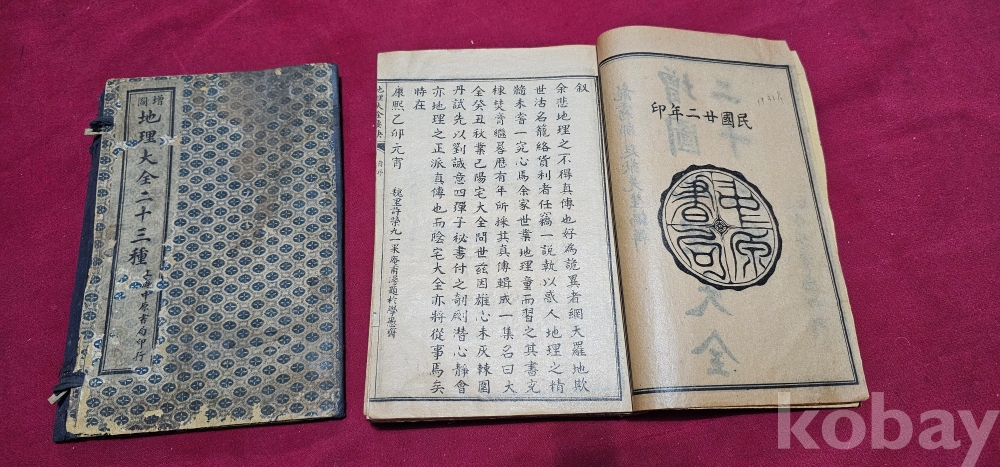 增圖
地理大全二十三種
上海中原書局印行
叙
余悲地理之不得真傳也好為詭異者網天羅地欺
世沽名籠絡貨利者任竊一說執以惑人地理之精
髓未嘗一究心焉余家世業地理童而習之其書充
棟焚膏繼晷歷有年所採其真傳輯成一集名曰大
全癸丑秋業已陽宅大全問世兹因雄心未灰棘圍
丹試先以劉誠意四彈子秘書付之剞劂潛心靜會
亦地理之正派真傳也而陰宅大全亦將從事焉矣
時在
康熙乙卯元宵
魏里許榮九一
地理大全要訣
民國廿二年印
中原書局
增圖
大全
kobay